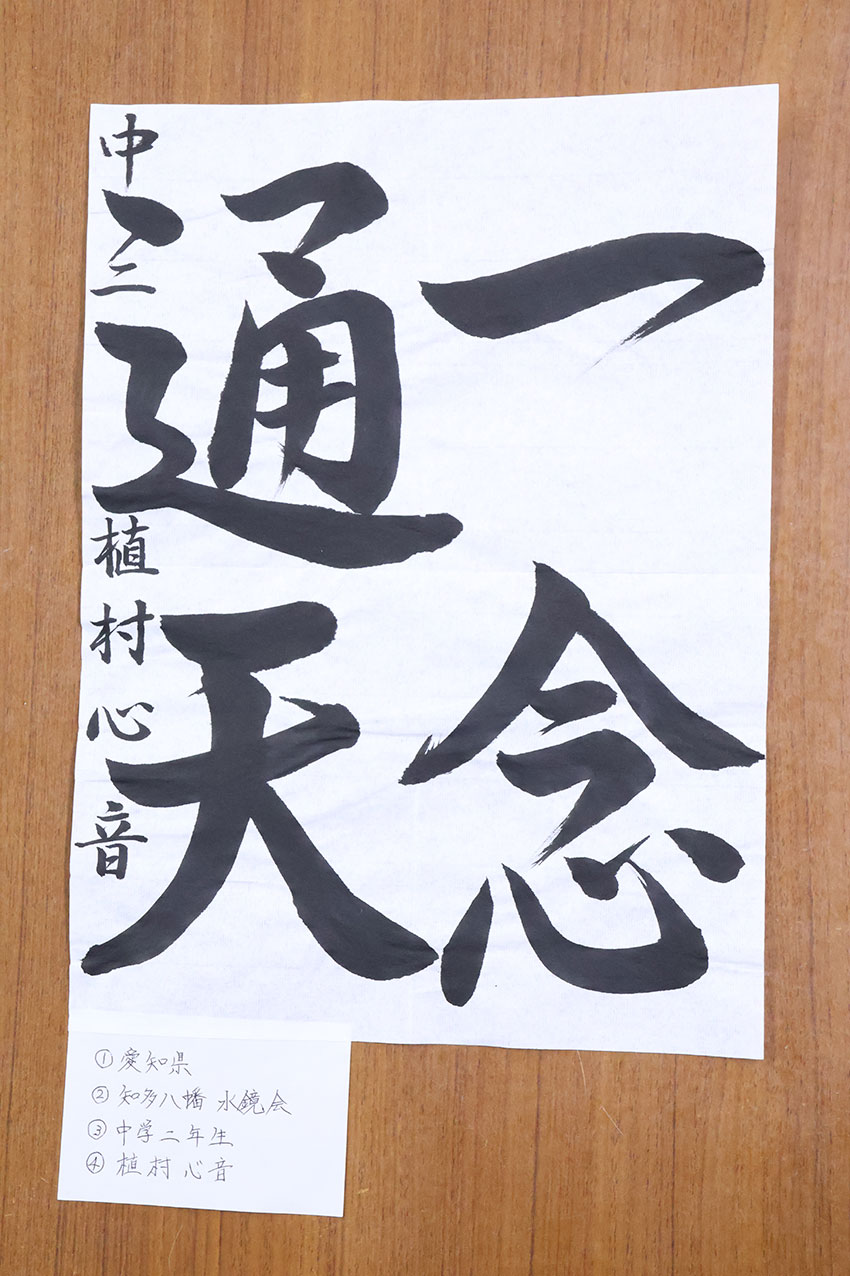 一念
通天
中二 植村心音
①愛知県
②知多八幡 水鏡会
③中学二年生
④植村心音